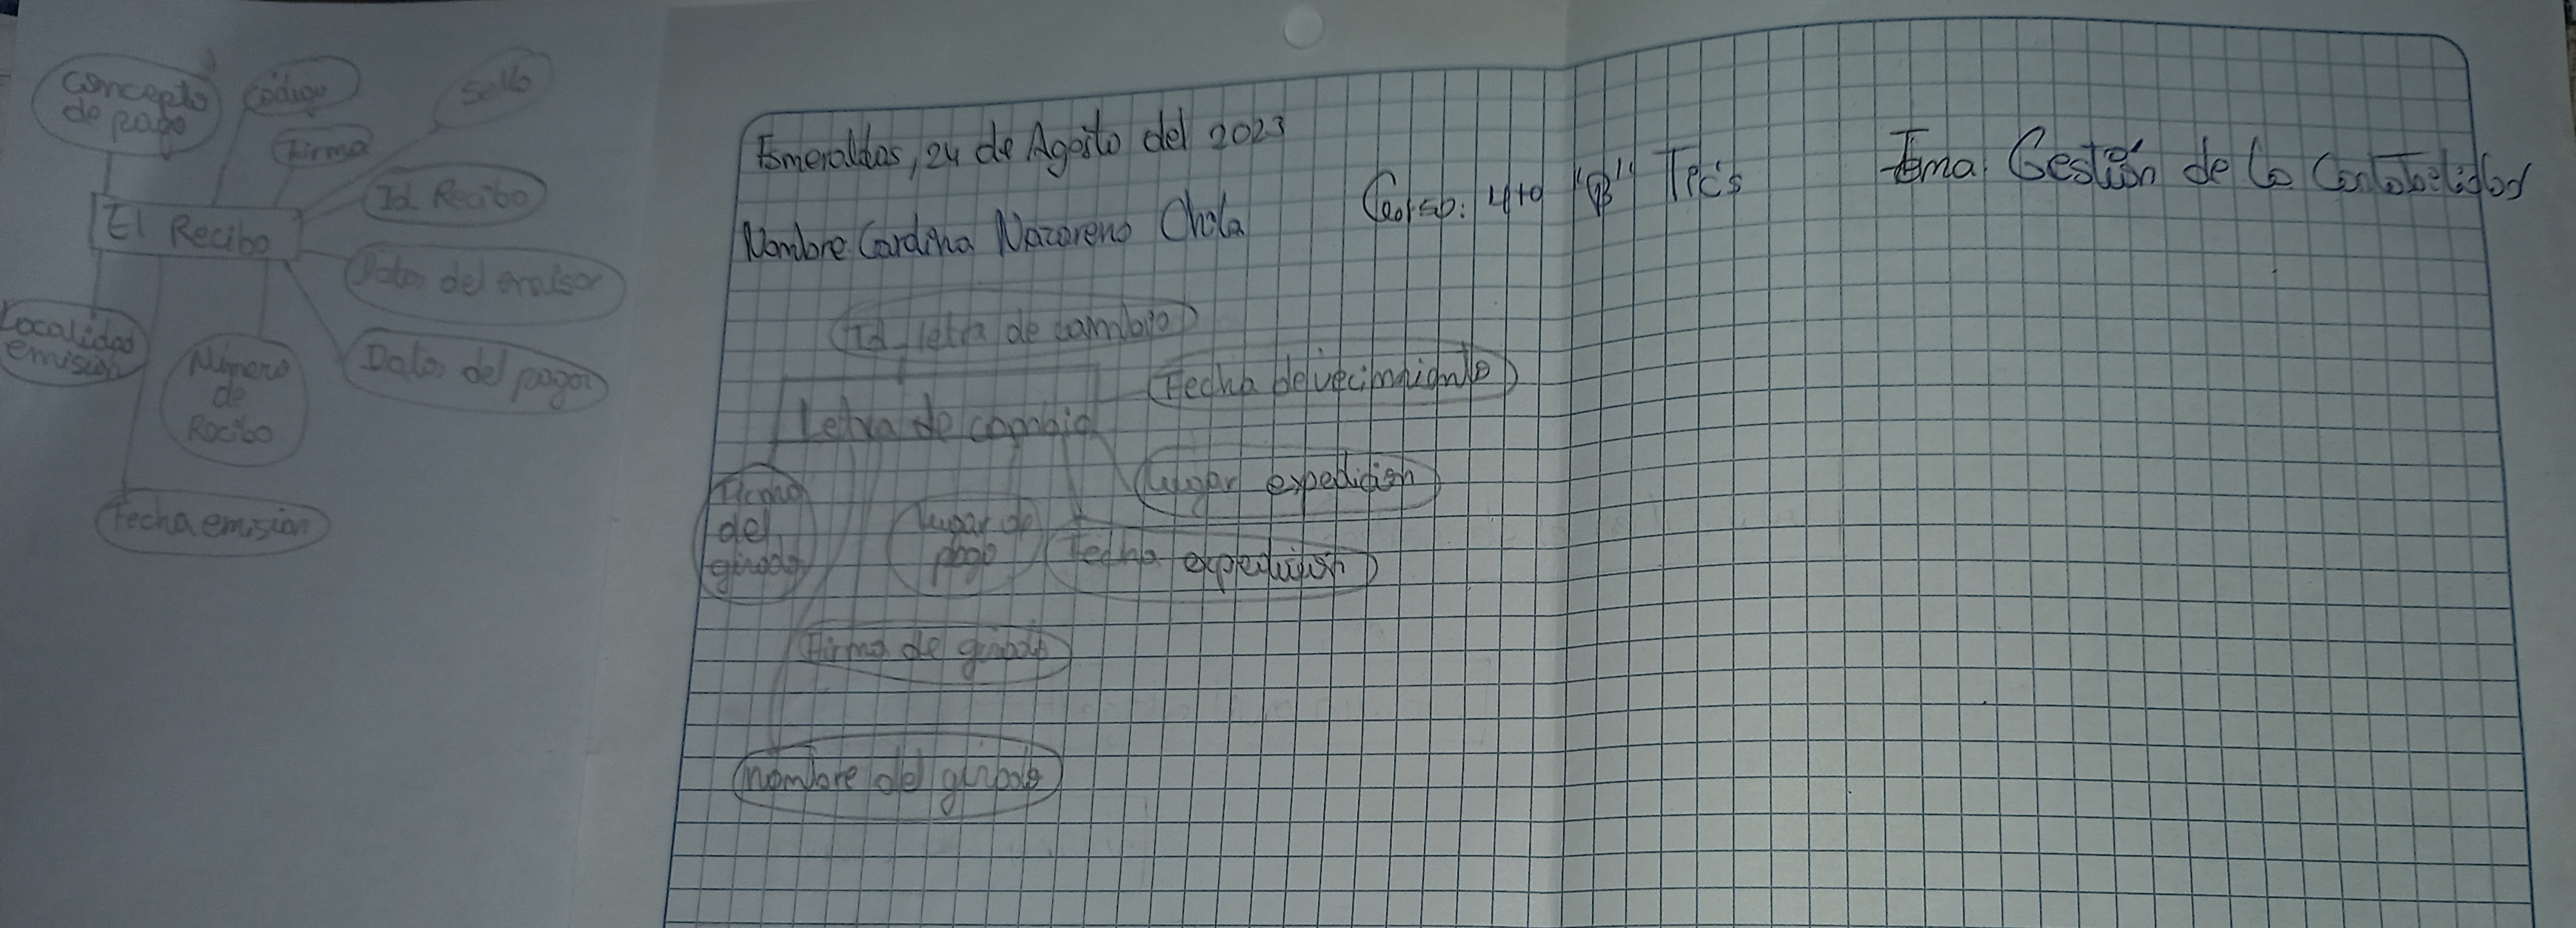 Concepto
de pago
código
Sello
Firma
Id Recibo
El Recibo
Datos del emaisor
Localidad
emisión
Número
de
Recibo
Datos del pagor
Fecha emisión
Esmeraldas, 24 de Agosto del 2023
Nombre Cardina Nazareno Chila
4to "B" Tec's
Tema: Gestión de la Contabelidad
Id letra de cambio
Fecha de vecimniento
Letra de cambio
Lugar expedición
Firma
del
girado
Lugar de
pago
Fecha expedición
Firma de girado
nombre del girado